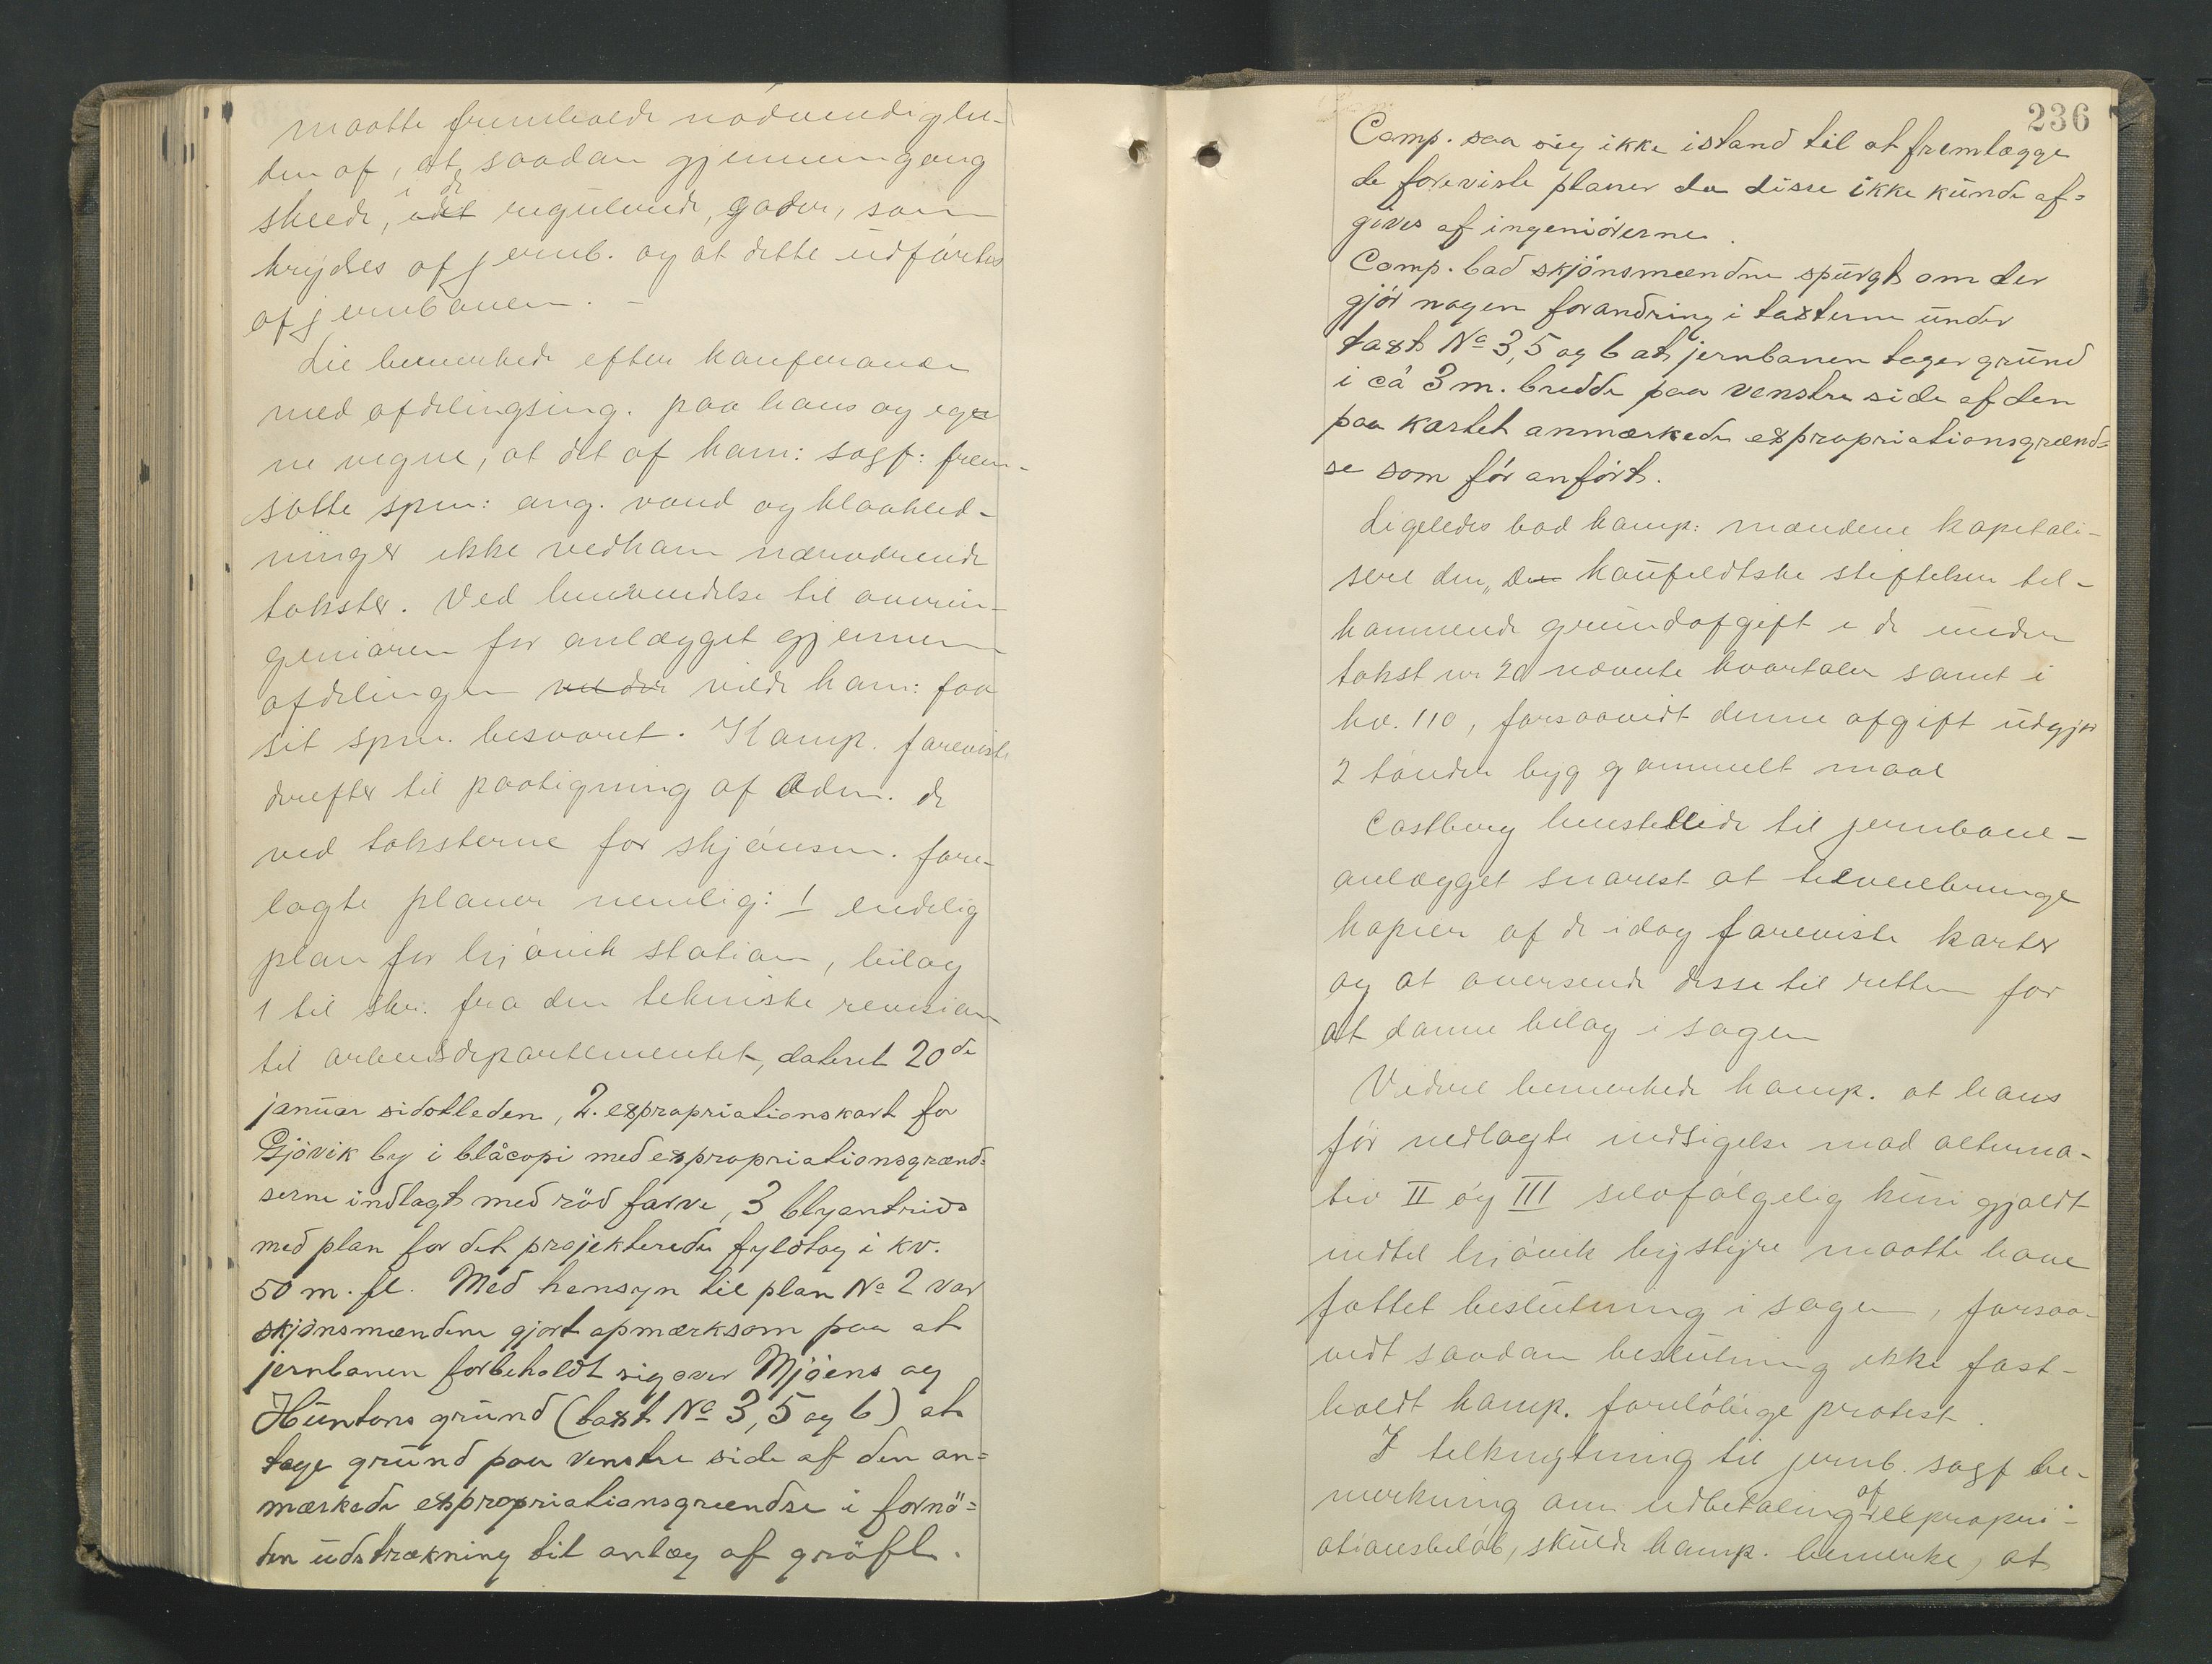 maatte fremholde nødvendighe-
den af, at saadan gjennemgang
skeede, i de regulerede gader, som
krydses af jernb. og at dette udførtes
af jernbanen. –
Lie bemerkede efter konferance
med afdelingsing. paa hans og eg
ne vegne, at det af kom: sagf: frem-
satte spm: ang. vand og kloakled-
ninger ikke vedkom nærværende
takster. Ved henvendelse til overin-
geniøren for anlægget gjennem
afdelingen vilde kom: faa
sit spm. besvaret. Komp. foreviste
derefter til paategning af adm. de
ved taksterne for skjønsm. fore-
lagte planer nemlig: 1 endelig
plan for Gjøvik station, bilag
1 til skr. fra den tekniske revision
til arbeidsdepartementet, dateret 20de
januar sidstleden, 2. expropriationskart for
Gjøvik by i blåcopi med expropriationsgrænd=
serne indlagt med röd farve, 3 blyantrids
med plan for det projekterede fyldtag i kv.
50 m. fl. Med hensyn til plan No 2 var
skjönsmændene gjort opmærksom paa at
jernbanen forbeholdt sig over Mjöens og
Huntons grund (taxt No 3, 5 og 6) at
tage grund paa venstre side af den an=
mærkede expropriationsgrændse i fornö=
den udstrækning til anlæg af gröft.
236
Comp. saa sig ikke istand til at fremlægge
de foreviste planer da disse ikke kunde af=
gives af ingeniörerne.
Comp. bad skjönsmændene spurgt om der
gjör nogen forandring i taxterne under
taxt No 3, 5 og 6 at jernbanen tager grund
i ca 3 m. bredde paa venstre side af den
paa kartet anmærkede expropriationsgrænd=
se som för anfört.
Ligeledes bad komp: mændene kapitali-
sere den Kaufeldtske stiftelsen til-
kommende grundafgift i de under
takst nr 20 nævnte kvartaler samt i
kv. 110, forsaavidt denne afgift udgjør
2 tønder byg gammelt maal
Castberg henstillede til jernbane-
anlægget snarest at tilveiebringe
kopier af de idag foreviste karter
og at oversende disse til retten for
at danne bilag i sagen
Videre bemerkede komp. at hans
før nedlagte indsigelse mod alterna-
tiv II og III selvfølgelig kun gjaldt
indtil Gjøvik bystyre maatte have
fattet beslutning i sagen, forsaa-
vidt saadan beslutning ikke fast-
holdt komp. foreløbige protest.
I tilknytning til jernb. sagf be-
merkning om udbetaling af expropri-
ationsbeløb, skulde komp. bemerke, at